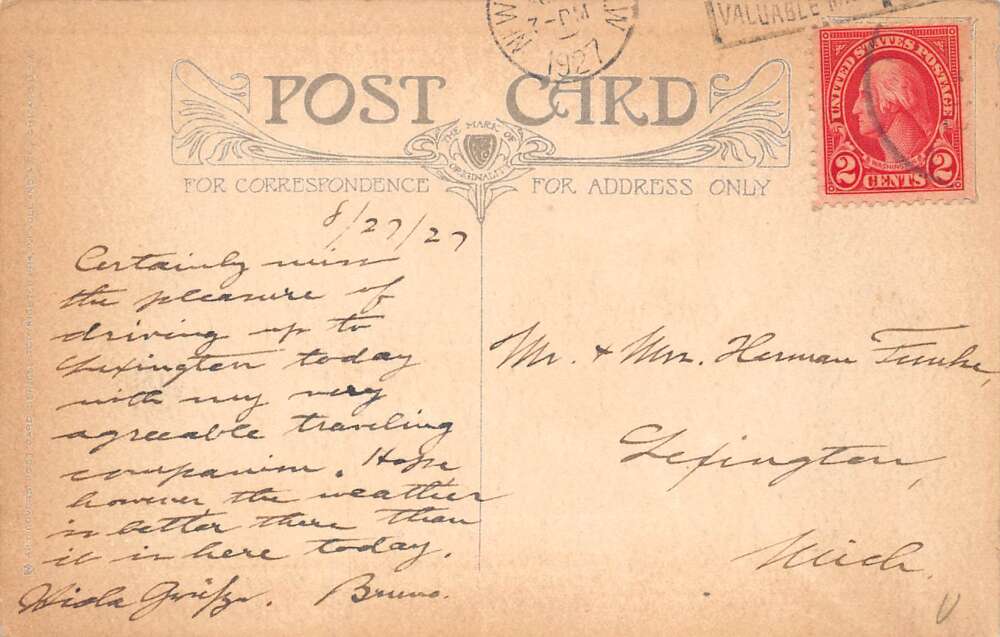 1927
VALUABLE
UNITED STATES POSTAGE
WASHINGTON
2 CENTS 2
POST CARD
THE MARK OF ORIGINALITY
FOR CORRESPONDENCE
FOR ADDRESS ONLY
8/27/27
Certainly miss
the pleasure of
driving up to
Lexington today
with my very
agreeable traveling
companion. Hope
however the weather
is better there than
it is here today.
Bruno.
Mr. & Mrs. Herman
Lexington,
Mich.